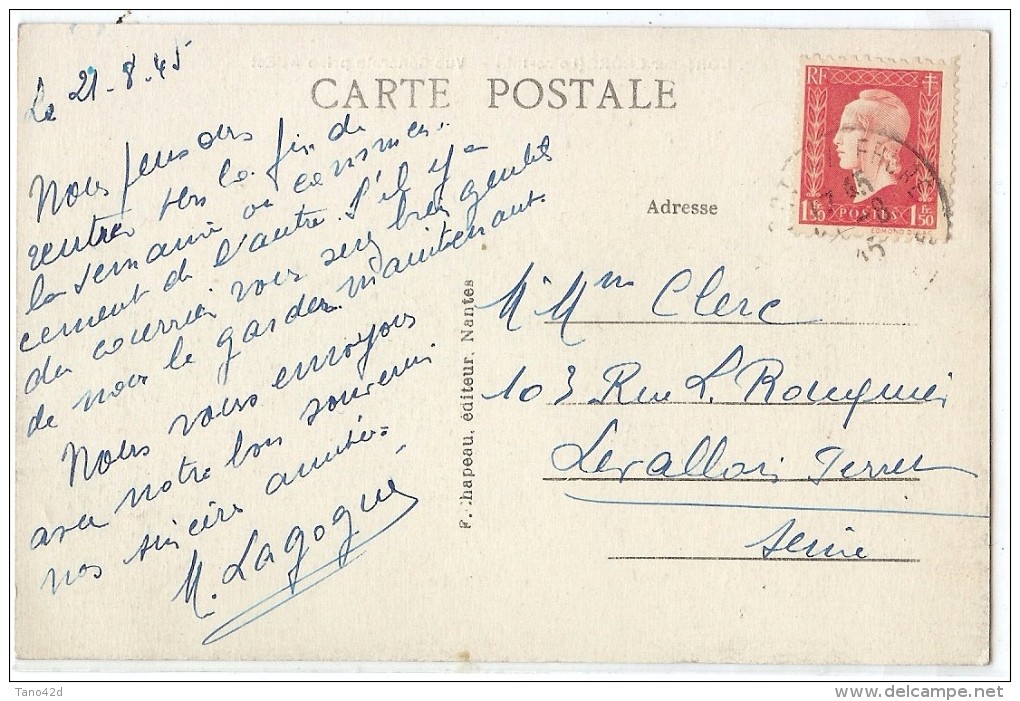 Le 21-8.45
CARTE POSTALE
Nous pensons
rentrer vers la fin de
la semaine ou commen-
cement de l'autre. S'il y a
du courrier vous serez bien gentils
de nous le garder maintenant.
Nous vous envoyons
avec notre bon souvenir
nos sincères amitiés
M. Lagogué
F. Chapeau, éditeur, Nantes
RF
1 Fr 50
POSTES
1 Fr 50
Adresse
M Mme Clerc
103 Rue L. Rouquier
Levallois Perret
Seine
Tano42d
www.delcampe.net